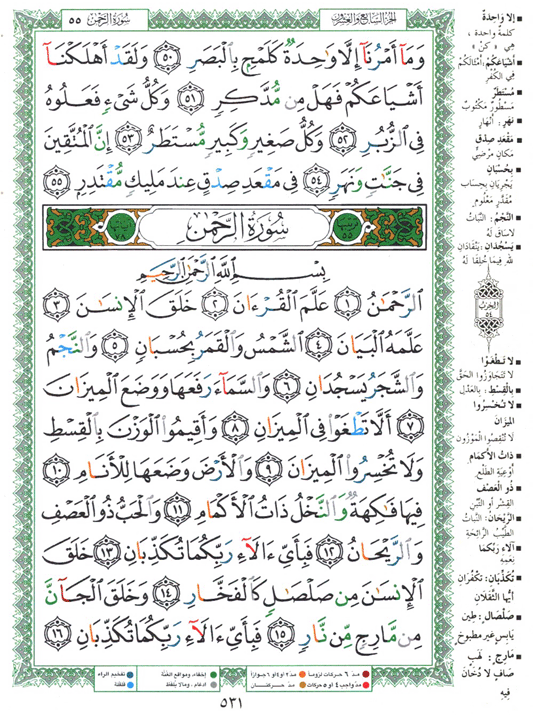 سُورَةُ الرَّحْمَٰن ٥٥
الجُزْءُ السَّابِعُ وَالعِشْرُون
وَمَآ أَمْرُنَآ إِلَّا وَٰحِدَةٌ كَلَمْحٍۭ بِٱلْبَصَرِ ٥٠ وَلَقَدْ أَهْلَكْنَآ
أَشْيَاعَكُمْ فَهَلْ مِن مُّدَّكِرٍ ٥١ وَكُلُّ شَىْءٍ فَعَلُوهُ
فِى ٱلزُّبُرِ ٥٢ وَكُلُّ صَغِيرٍ وَكَبِيرٍ مُّسْتَطَرٌ ٥٣ إِنَّ ٱلْمُتَّقِينَ
فِى جَنَّٰتٍ وَنَهَرٍ ٥٤ فِى مَقْعَدِ صِدْقٍ عِندَ مَلِيكٍ مُّقْتَدِرٍۭ ٥٥
سُورَةُ الرَّحْمٰن
بِسْمِ ٱللَّهِ ٱلرَّحْمَٰنِ ٱلرَّحِيمِ
ٱلرَّحْمَٰنُ ١ عَلَّمَ ٱلْقُرْءَانَ ٢ خَلَقَ ٱلْإِنسَٰنَ ٣
عَلَّمَهُ ٱلْبَيَانَ ٤ ٱلشَّمْسُ وَٱلْقَمَرُ بِحُسْبَانٍ ٥ وَٱلنَّجْمُ
وَٱلشَّجَرُ يَسْجُدَانِ ٦ وَٱلسَّمَآءَ رَفَعَهَا وَوَضَعَ ٱلْمِيزَانَ
٧ أَلَّا تَطْغَوْا۟ فِى ٱلْمِيزَانِ ٨ وَأَقِيمُوا۟ ٱلْوَزْنَ بِٱلْقِسْطِ
وَلَا تُخْسِرُوا۟ ٱلْمِيزَانَ ٩ وَٱلْأَرْضَ وَضَعَهَا لِلْأَنَامِ ١٠
فِيهَا فَٰكِهَةٌ وَٱلنَّخْلُ ذَاتُ ٱلْأَكْمَامِ ١١ وَٱلْحَبُّ ذُو ٱلْعَصْفِ
وَٱلرَّيْحَانُ ١٢ فَبِأَىِّ ءَالَآءِ رَبِّكُمَا تُكَذِّبَانِ ١٣ خَلَقَ
ٱلْإِنسَٰنَ مِن صَلْصَٰلٍ كَٱلْفَخَّارِ ١٤ وَخَلَقَ ٱلْجَآنَّ
مِن مَّارِجٍ مِّن نَّارٍ ١٥ فَبِأَىِّ ءَالَآءِ رَبِّكُمَا تُكَذِّبَانِ ١٦
إلَّا وَاحِدَةٌ
كلمةٌ واحدة ،
هي « كُنْ »
أشْيَاعَكُمْ: أمْثَالَكُمْ
في الكُفْرِ
مُسْتَطَرٌ
مَسْطُورٌ مَكْتُوبٌ
نَهَرٍ: أنْهارٍ
مَقْعَدِ صِدْقٍ
مَكانٍ مَرْضِيٍّ
بِحُسْبَانٍ
يَجْرِيَانِ بِحِسابٍ
مُقَدَّرٍ مَعْلُومٍ
النَّجْمُ: النَّباتُ
لا سَاقَ لَهُ
يَسْجُدَانِ: يَنْقَادَانِ
لِلَّهِ فِيما خُلِقا لَهُ
الحِزْب
٥٤
لَا تَطْغَوْا
لا تَتَجَاوَزُوا الحَقَّ
بِالقِسْطِ: بِالعَدْلِ
لَا تُخْسِرُوا
المِيزَان
لا تَنْقُصُوا المَوْزُونَ
ذَاتُ الأَكْمَامِ
أوْعِيَةِ الطَّلْعِ
ذُو العَصْفِ
القِشْرِ أو التِّبْنِ
الرَّيْحَانُ: النَّبَاتُ
الطَّيِّبُ الرَّائِحَةِ
آلَاءِ رَبِّكُمَا
نِعَمِهِ
تُكَذِّبَانِ: تَكْفُرَانِ
أيُّها الثَّقَلَانِ
صَلْصَالٍ: طِينٍ
يَابِسٍ غَيْرِ مَطْبُوخٍ
مَارِجٍ: لَهَبٍ
صَافٍ لا دُخَانَ
فِيهِ
مدّ ٦ حركات لزوماً
مدّ ٢ أو ٤ أو ٦ جوازاً
إخفاء، ومواقع الغنّة
تفخيم الراء
مدّ واجب ٤ أو ٥ حركات
مدّ حركتان
إدغام، وما لا يُلفَظ
قلقلة
٥٣١